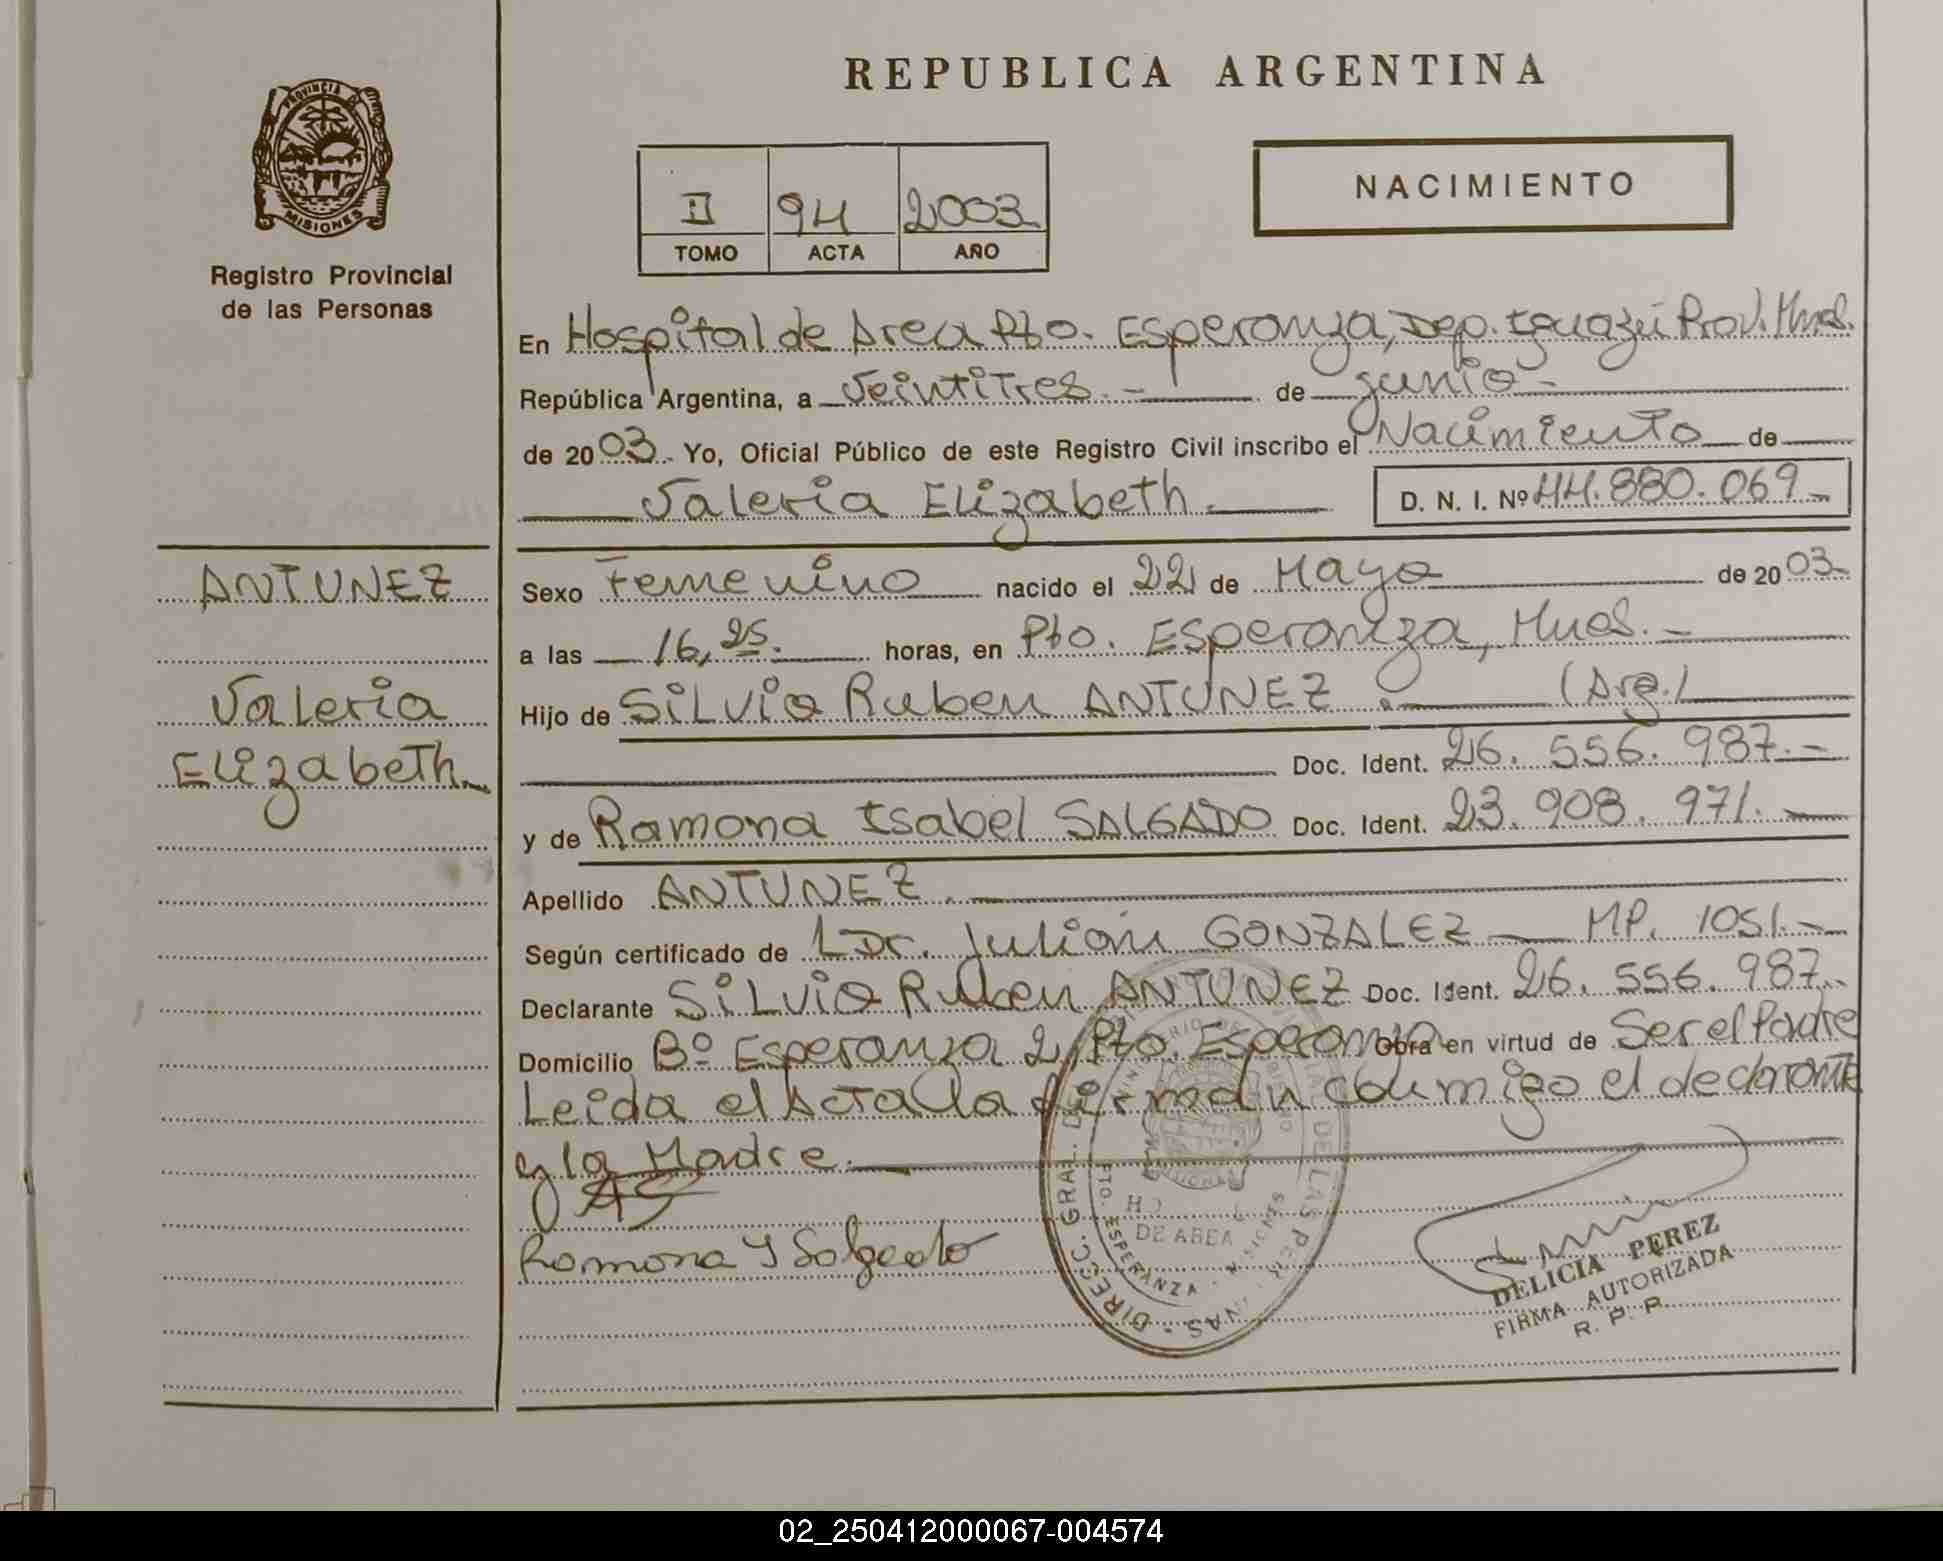 REPUBLICA ARGENTINA
PROVINCIA DE
MISIONES
Registro Provincial
de las Personas
II 94 2003
TOMO ACTA AÑO
NACIMIENTO
En Hospital de Area Pto. Esperanza, Dep. Iguazú Prov. Mnes.
República Argentina, a Veintitres.- de junio-
de 2003.- Yo, Oficial Público de este Registro Civil inscribo el Nacimiento de
Valeria Elizabeth. D. N. I. Nº 44.880.069-
ANTUNEZ
Valeria
Elizabeth.
Sexo Femenino nacido el 22 de Mayo de 2003-
a las 16,25. horas, en Pto. Esperanza, Mnes.-
Hijo de SiLViO Ruben ANTUNEZ. (Arg.)
Doc. Ident. 26.556.987.-
y de Ramona Isabel SALGADO Doc. Ident. 23.908.971.-
Apellido ANTUNEZ.
Según certificado de Dr. Julián GONZALEZ MP. 1051.-
Declarante SiLViO Ruben ANTUNEZ Doc. Ident. 26.556.987.-
Domicilio Bº Esperanza 2, Pto. Esperanza Obra en virtud de Ser el Padre
Leida el Acta la firman conmigo el declarante
y la Madre.
Ramona Y Salgado
DE AREA
PTO. ESPERANZA - MISIONES
DELICIA PEREZ
FIRMA AUTORIZADA
R. P. P.
02_250412000067-004574